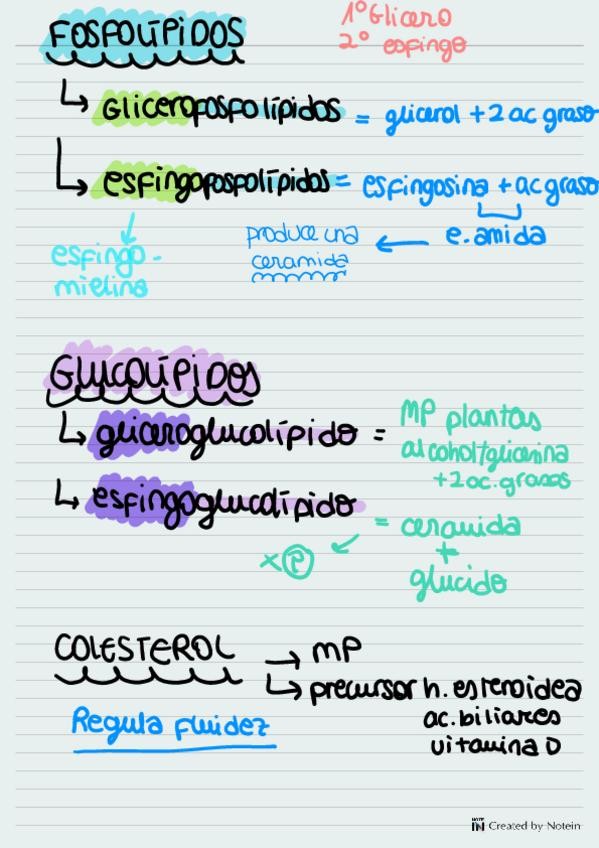 FOSFOLÍPIDOS
1º Glicero
2º esfingo
Glicerofosfolípidos = glicerol + 2 ac graso
esfingofosfolípidos = esfingosina + ac graso
e. amida
produce una
ceramida
esfingo-
mielina
GLUCOLÍPIDOS
gliceroglucolípido =
MP plantas
alcohol/glicerina
+ 2 ac. grasos
esfingoglucolípido
= ceramida
+
glucido
x P
COLESTEROL
→ MP
precursor h. esteroidea
ac. biliares
vitamina D
Regula fluidez
NOTE IN Created by Notein